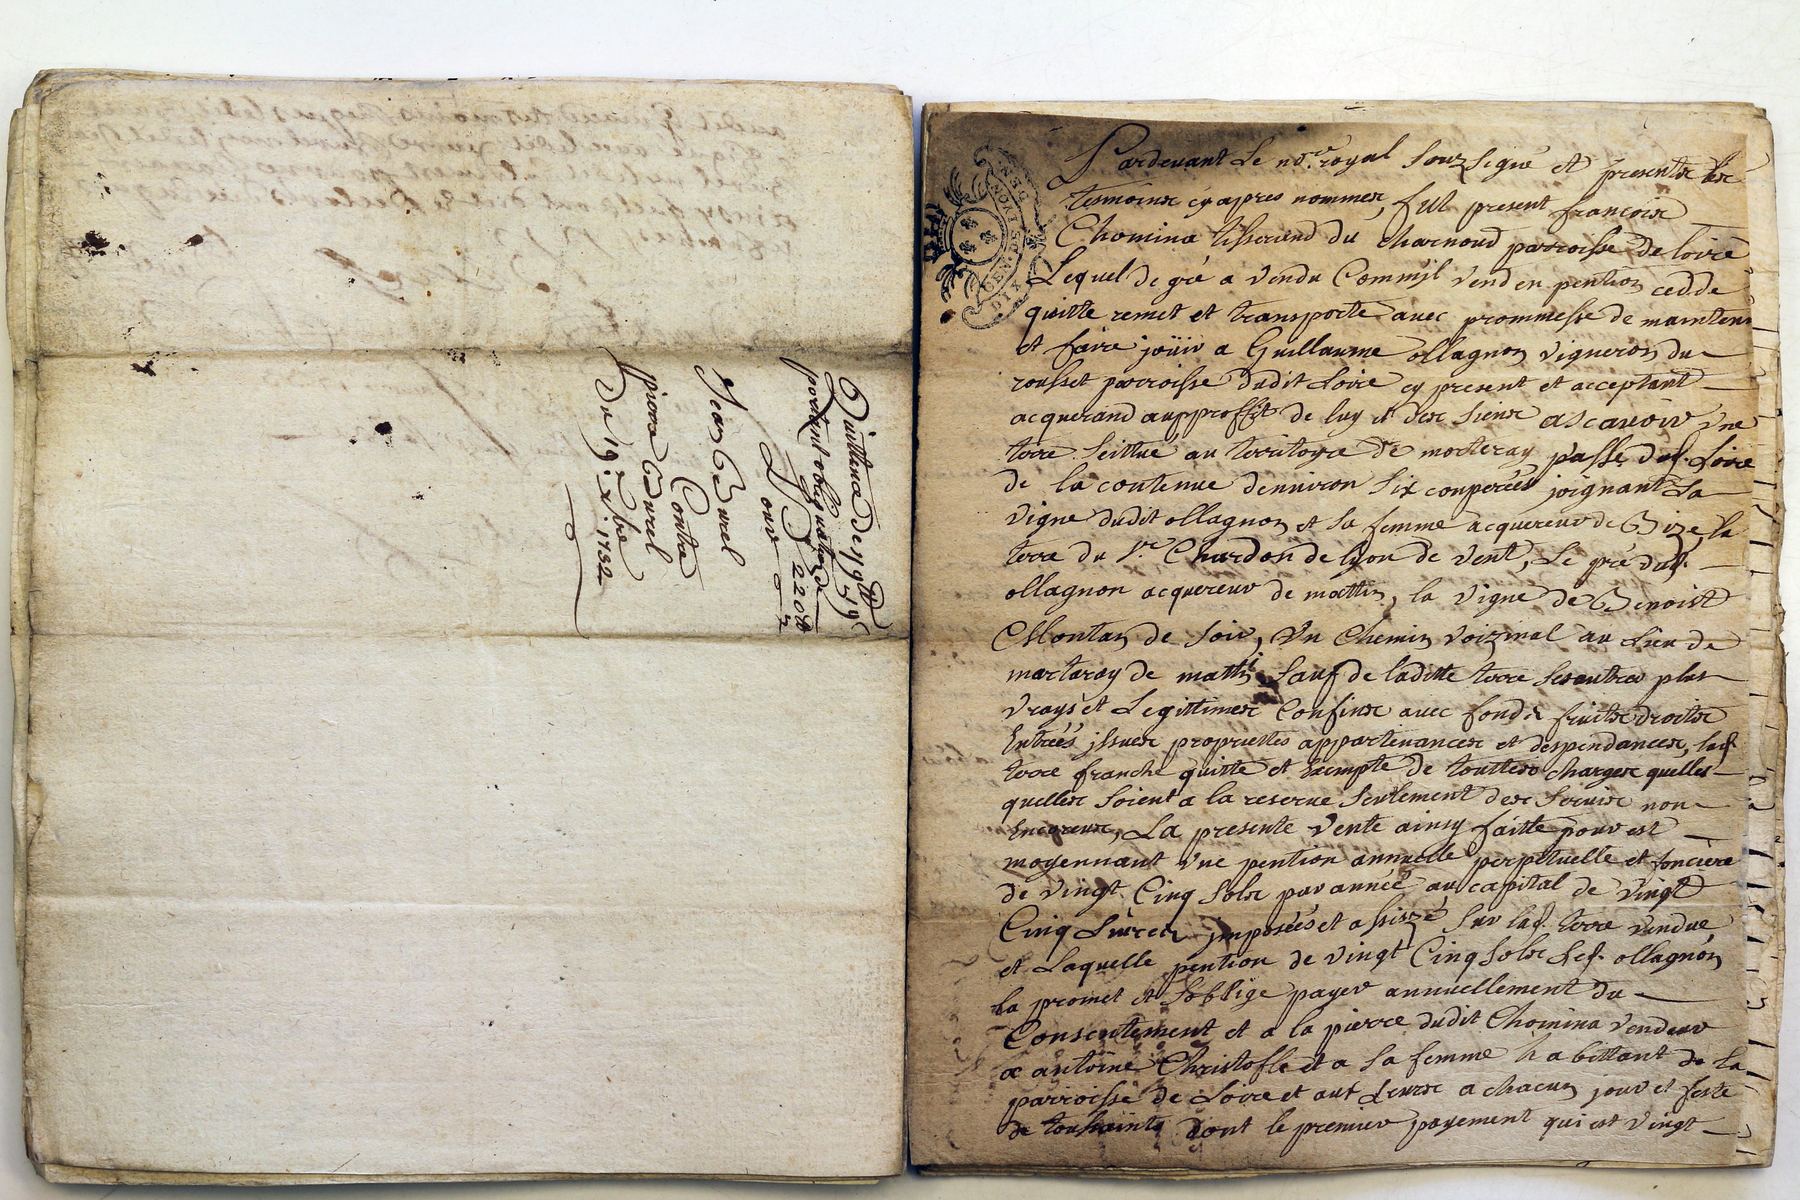 Quittance de 199 ₶ 19 s
portant obligation de
220 ₶
pour
Jean Burel
Contre
pierre Burel
Du 19. xbre 1732
GEN. DE LYON
DIX DEN
Pardevant Le nore. royal Souzsigné et presents les
tesmoins cy apres nommes, fut present françois
Chomina tisserand du charnoud parroisse de Loire
Lequel de gré a vendu Commil vend en pention cedde
quitte remet et transporte avec prommesse de maintenir
et faire joüir a Guillaume ollagnon vigneron du
rousset parroisse dudit Loire cy present et acceptant
acquerand auproffit de luy et des siens ascavoir une
terre Seittue au territoire de morteray passe dud. Loire
de la contenue denuiron Six couperées joignant La
vigne dudit ollagnon et sa femme acquereur de Bize, la
terre du Sr. Chardon de lyon de vent, Le pré dud.
ollagnon acquereur de mattin, la vigne de Benoist
Montan de Soir, Un Chemin voizinal au Lieu de
martaray de mattin Sauf de laditte terre ses autres plus
vrays et Legittimes Confins avec fonds fruits droits
Entrées jssues proprietes appartenances et despendances, lad.
terre franche quitte et Exempte de touttes charges quelles
quelles soient a la reserue seulement des seruis non
Encoreus, La presente vente ainsy faitte pour est
moyennant une pention annuelle perpetuelle et fonciere
de vingt Cinq sols par année au capital de vingt
Cinq Livres jmposées et assizé sur lad. terre vendue
et Laquelle pention de vingt Cinq sols led. ollagnon
la promet et soblige payer annuellement du
Consentement et a la pierre dudit Chomina vendeur
a antoine Christofle et a sa femme habittant de la
parroisse de Loire et aux Leurs a chacun jour et feste
de toussaints dont le premier payement qui est vingt